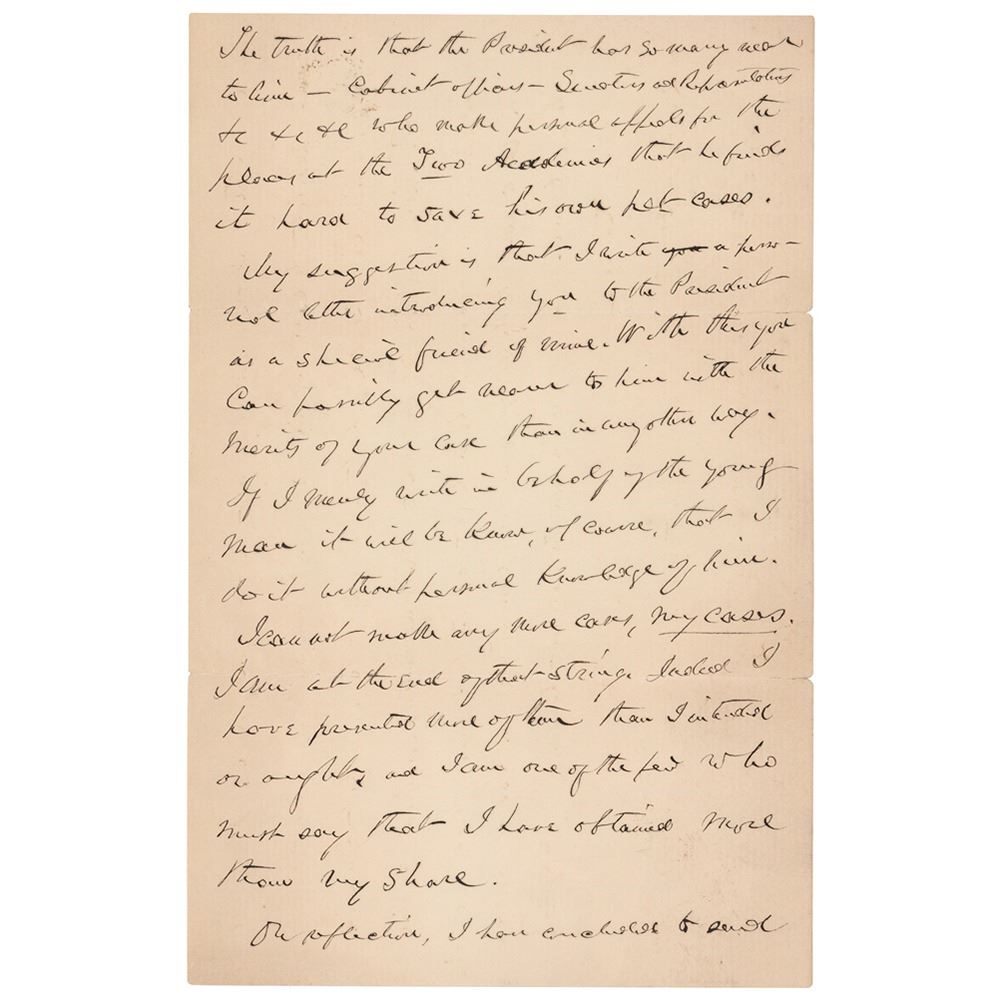 The truth is that the President has so many near
to him — Cabinet officers — Senators and Representatives
&c &c &c who make personal appeals for the
places at the Two Academies that he finds
it hard to save his own pet cases.
My suggestion is that I write you a perso-
nal letter introducing you to the President
as a special friend of mine. With this you
can possibly get nearer to him with the
merits of your case than in any other way.
If I merely write in behalf of the young
man it will be known, of course, that I
do it without personal knowledge of him.
I can not make any more cases, my cases.
I am at the end of that string. Indeed I
have presented more of them than I intended
or ought, and I am one of the few who
must say that I have obtained more
than my share.
On reflection, I have concluded to send